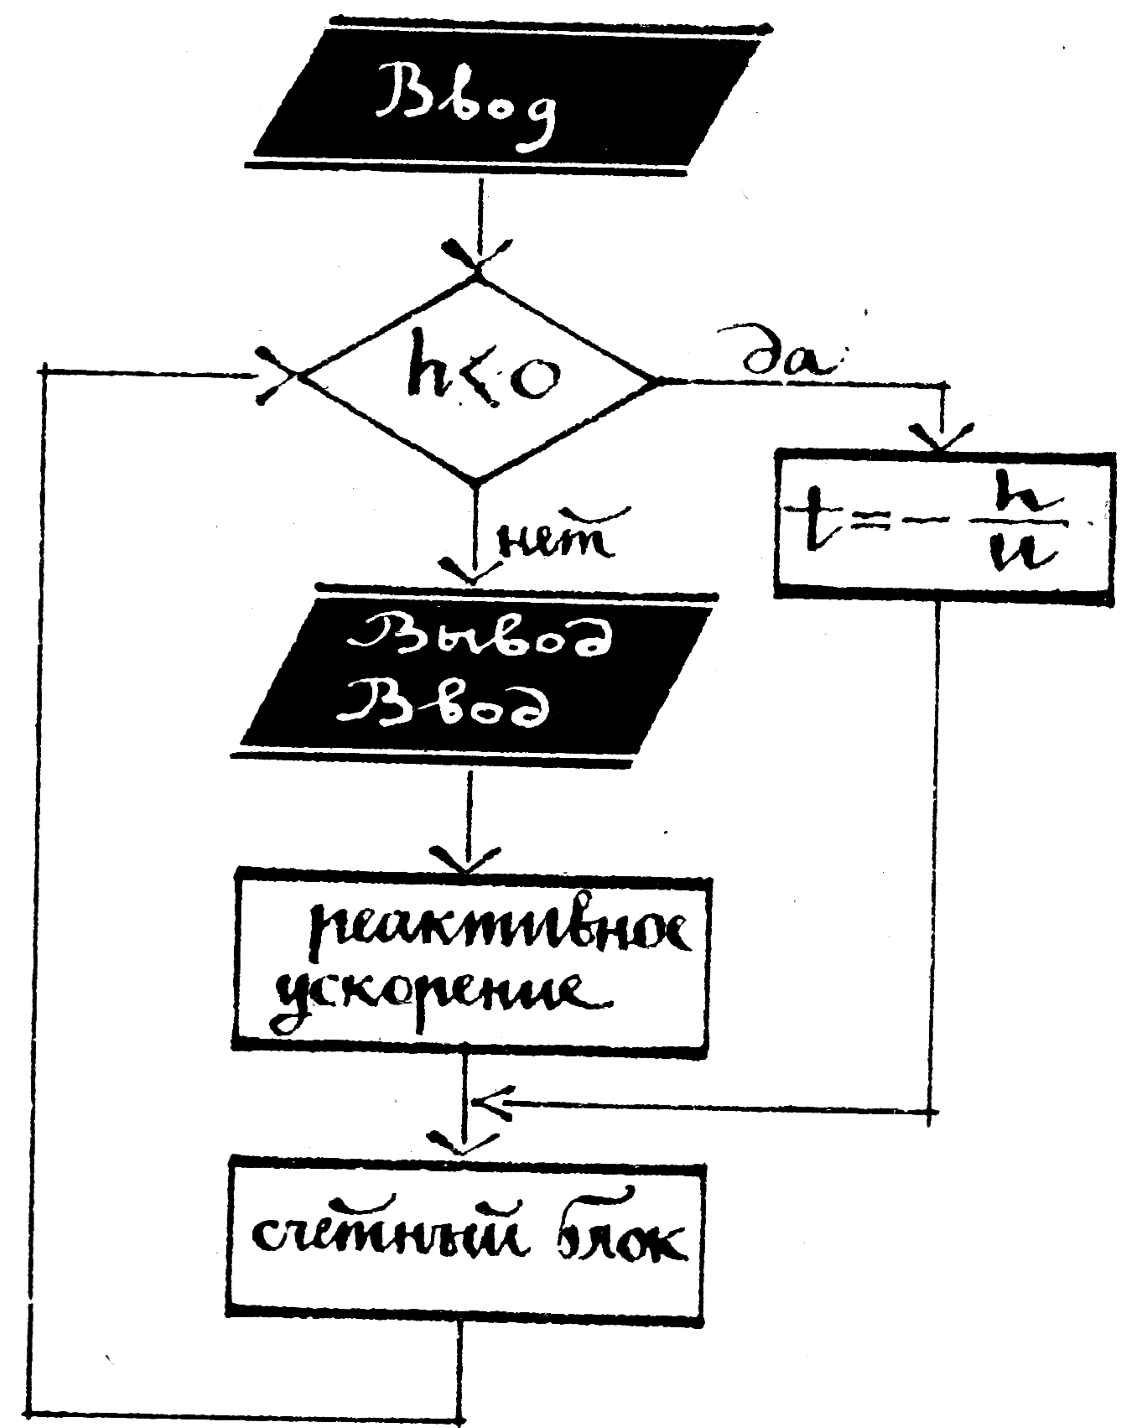 Ввод
h < 0
да
t = - h/u
нет
Вывод
Ввод
реактивное
ускорение
счетный блок